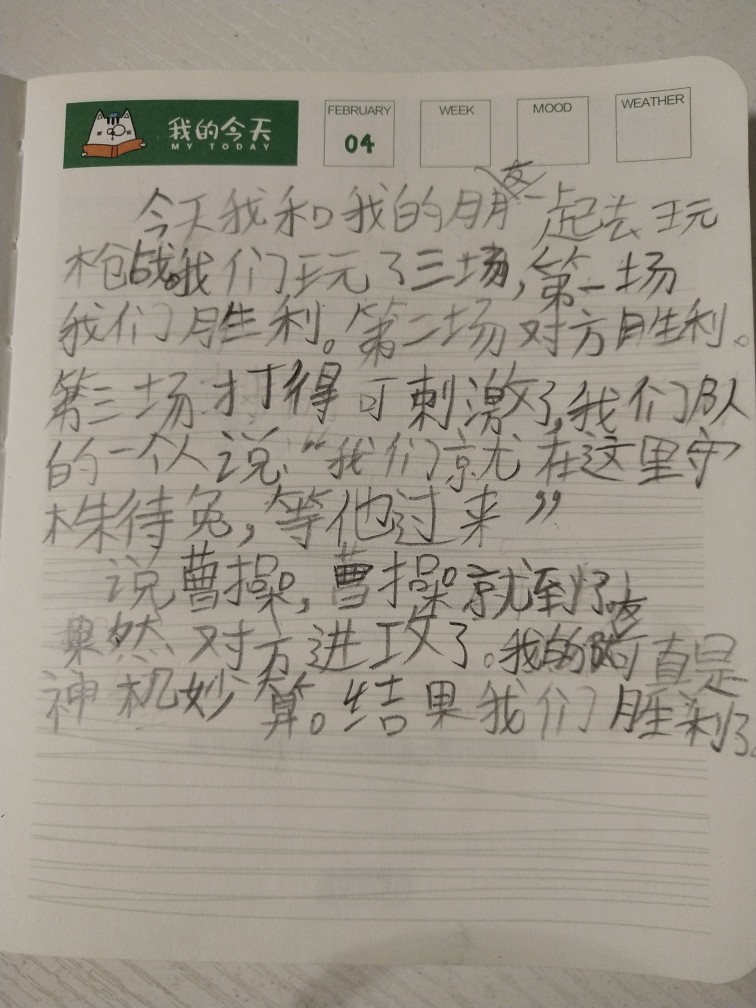 我的今天
MY TODAY
FEBRUARY
04
WEEK
MOOD
WEATHER
今天我和我的朋友一起去玩
枪战。我们玩了三场,第一场
我们胜利。第二场对方胜利。
第三场打得可刺激了,我们队
的一个人说:“我们就在这里守
株待兔,等他过来”
说曹操,曹操就到了,
果然对方进攻了。我的队友可真是
神机妙算。结果我们胜利了。